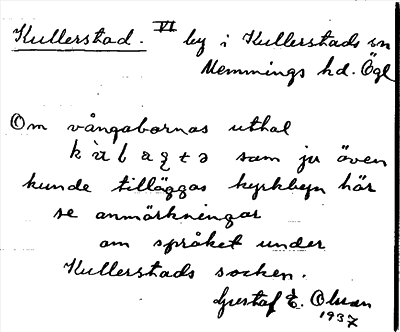 Kullerstad. VI by i Kullerstads sn
Memmings hd. Ögl
Om vångabornas uthal
som ju även
kunde tilläggas kyrkbyn här
se anmärkningar
om språket under
Kullerstads socken.
Gustaf E. Olsson
1937